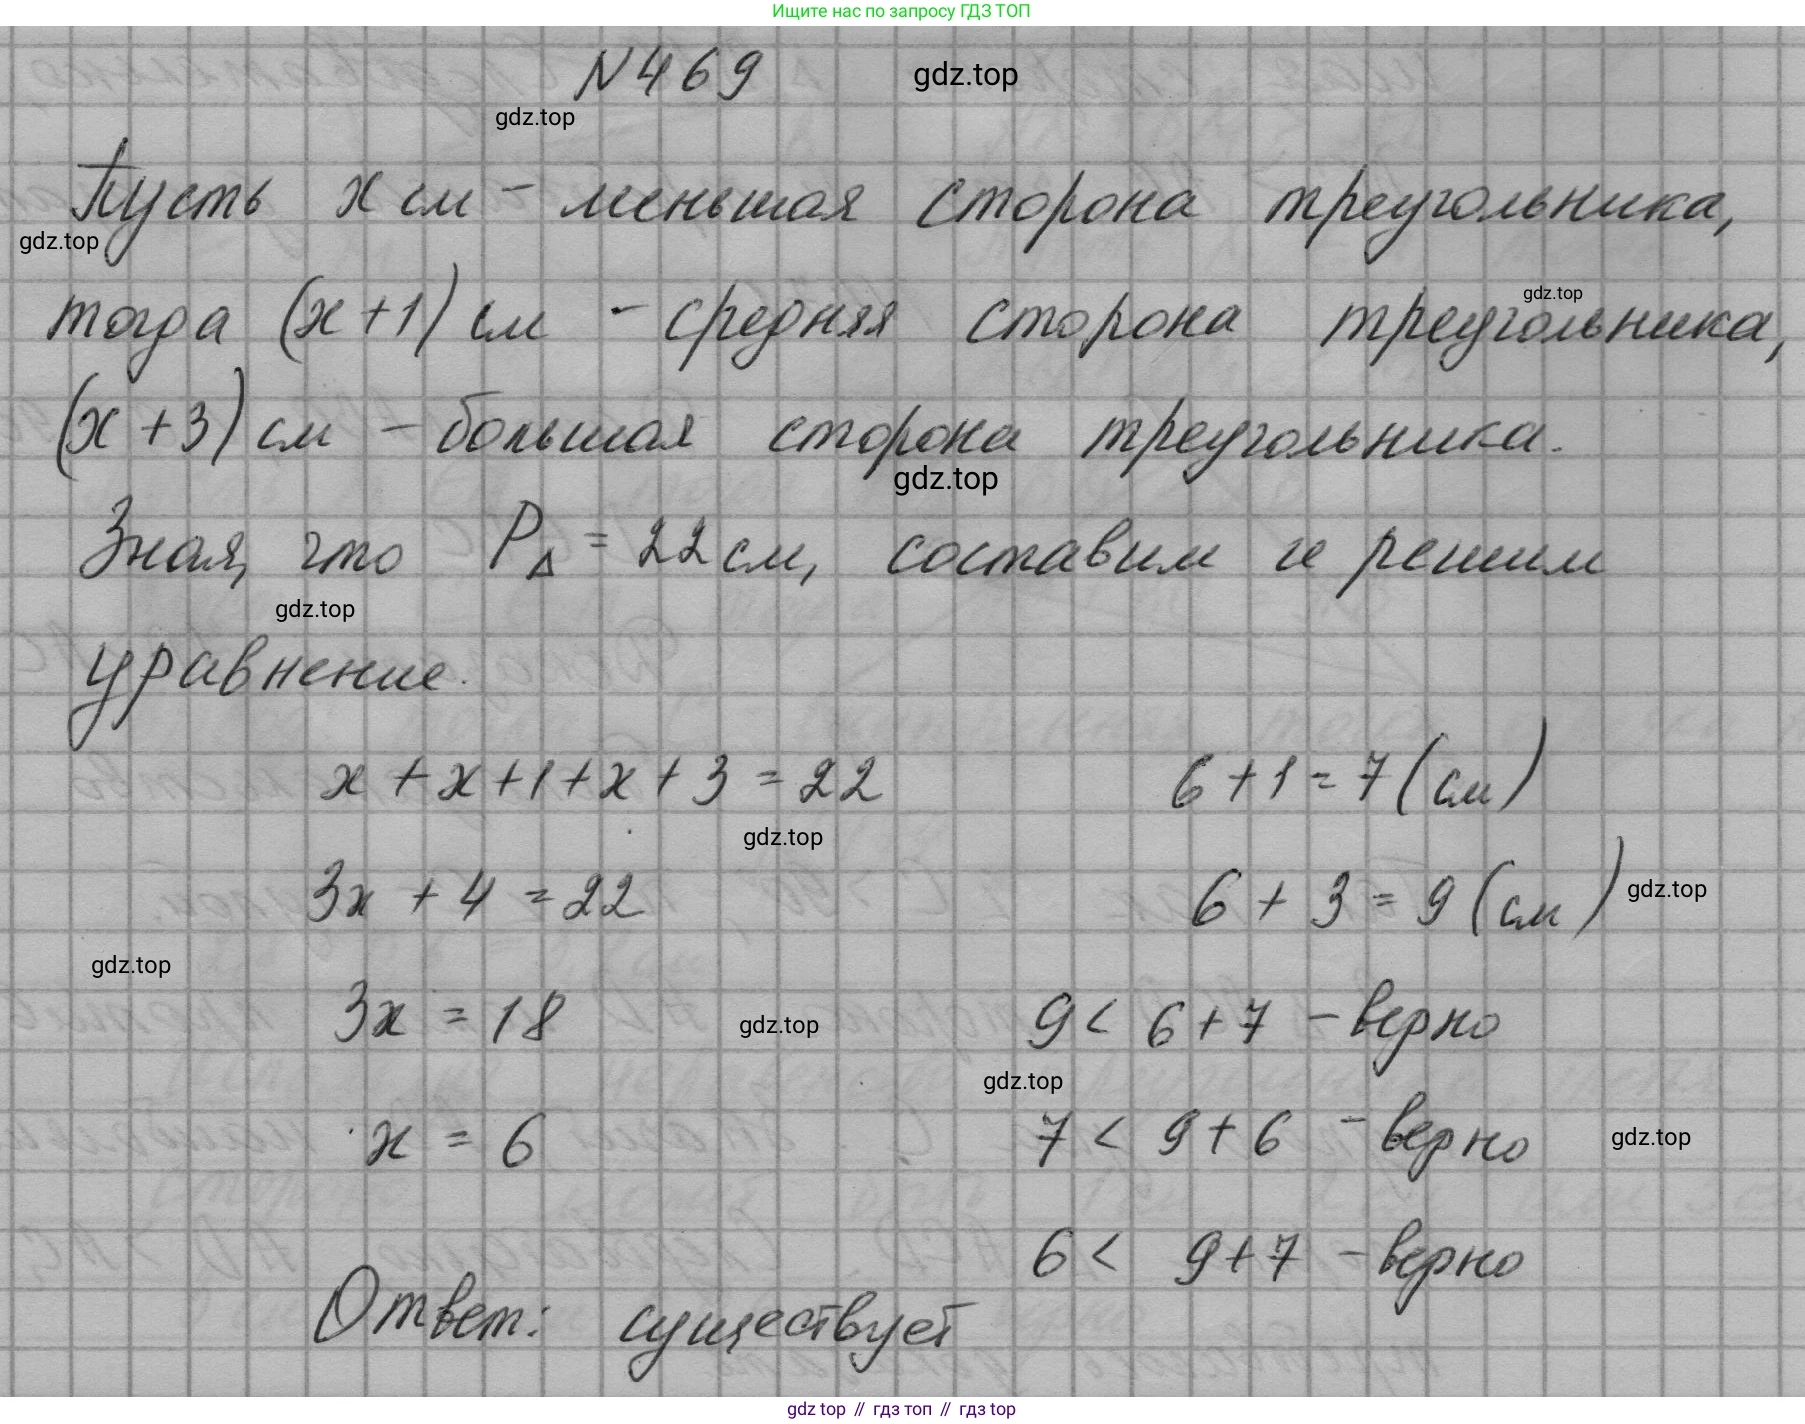 Ищите нас по запросу ГДЗ ТОП
N469
gdz.top
gdz.top
Пусть x см - меньшая сторона треугольника,
gdz.top
тогда (x+1) см - средняя сторона треугольника,
gdz.top
(x+3) см - большая сторона треугольника.
gdz.top
Зная, что PΔ = 22 см, составим и решим
gdz.top
уравнение.
x + x + 1 + x + 3 = 22
6 + 1 = 7 (см)
gdz.top
3x + 4 = 22
6 + 3 = 9 (см)
gdz.top
gdz.top
3x = 18
gdz.top
9 < 6 + 7 - верно
gdz.top
x = 6
7 < 9 + 6 - верно
gdz.top
6 < 9 + 7 - верно
Ответ: существует
gdz top // гдз топ // гдз top